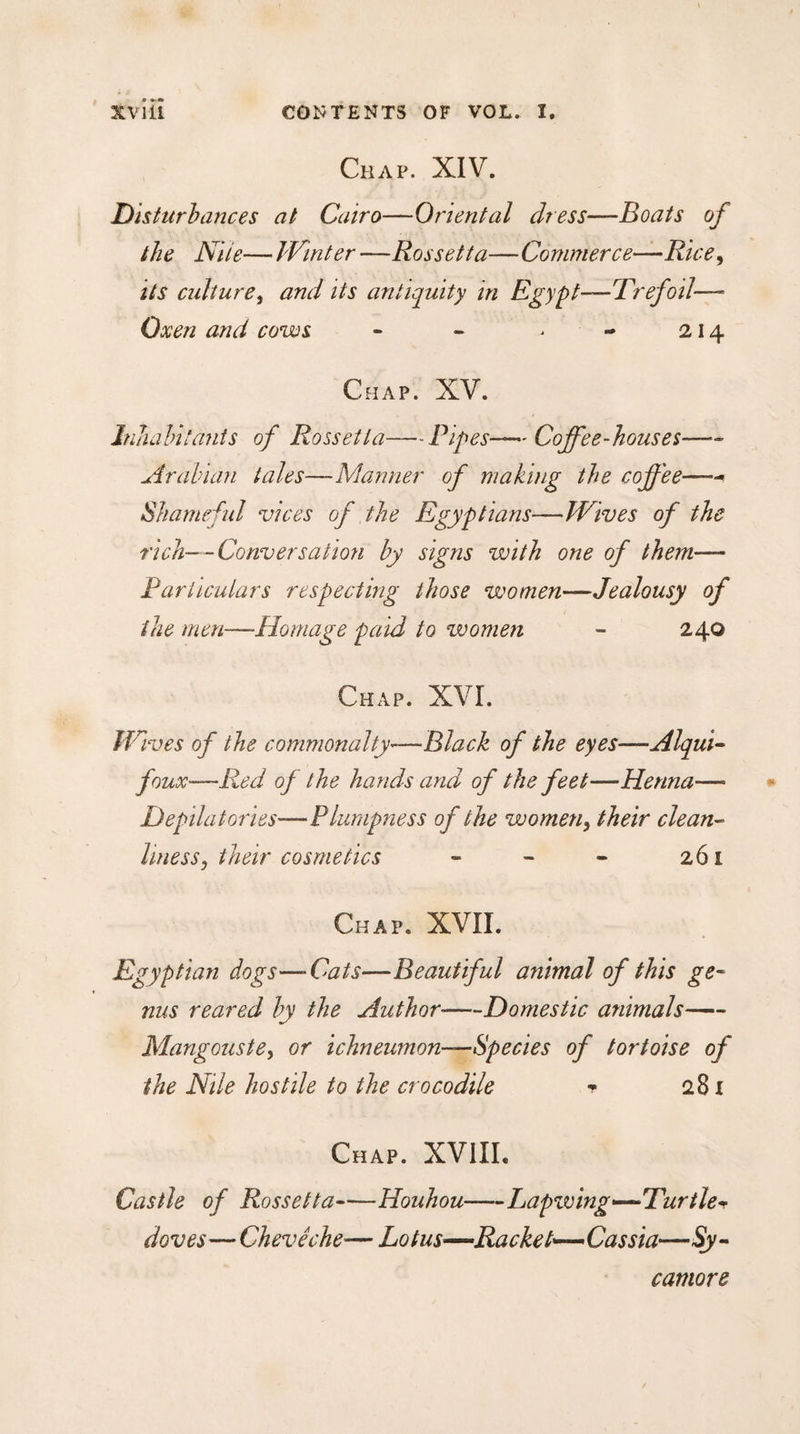 xviii CONTENTS OF VOL. I.
CHAP. XIV.
Disturbances at Cairo—Oriental dress—Boats of
the Nile—Winter—Rossetta—Commerce—Rice,
its culture, and its antiquity in Egypt—Trefoil—
Oxen and cows - - - - 214
CHAP. XV.
Inhabitants of Rossetta—Pipes—Coffee-houses—
Arabian tales—Manner of making the coffee—
Shameful vices of the Egyptians—Wives of the
rich—Conversation by signs with one of them—
Particulars respecting those women—Jealousy of
the men—Homage paid to women - 240
CHAP. XVI.
Wives of the commonalty—Black of the eyes—Alqui-
foux—Red of the hands and of the feet—Henna—
Depilatories—Plumpness of the women, their clean-
liness, their cosmetics - - - 261
CHAP. XVII.
Egyptian dogs—Cats—Beautiful animal of this ge-
nus reared by the Author—Domestic animals—
Mangouste, or ichneumon—Species of tortoise of
the Nile hostile to the crocodile - 281
CHAP. XVIII.
Castle of Rossetta—Houhou—Lapwing—Turtle-
doves—Chevêche—Lotus—Racket—Cassia—Sy-
camore